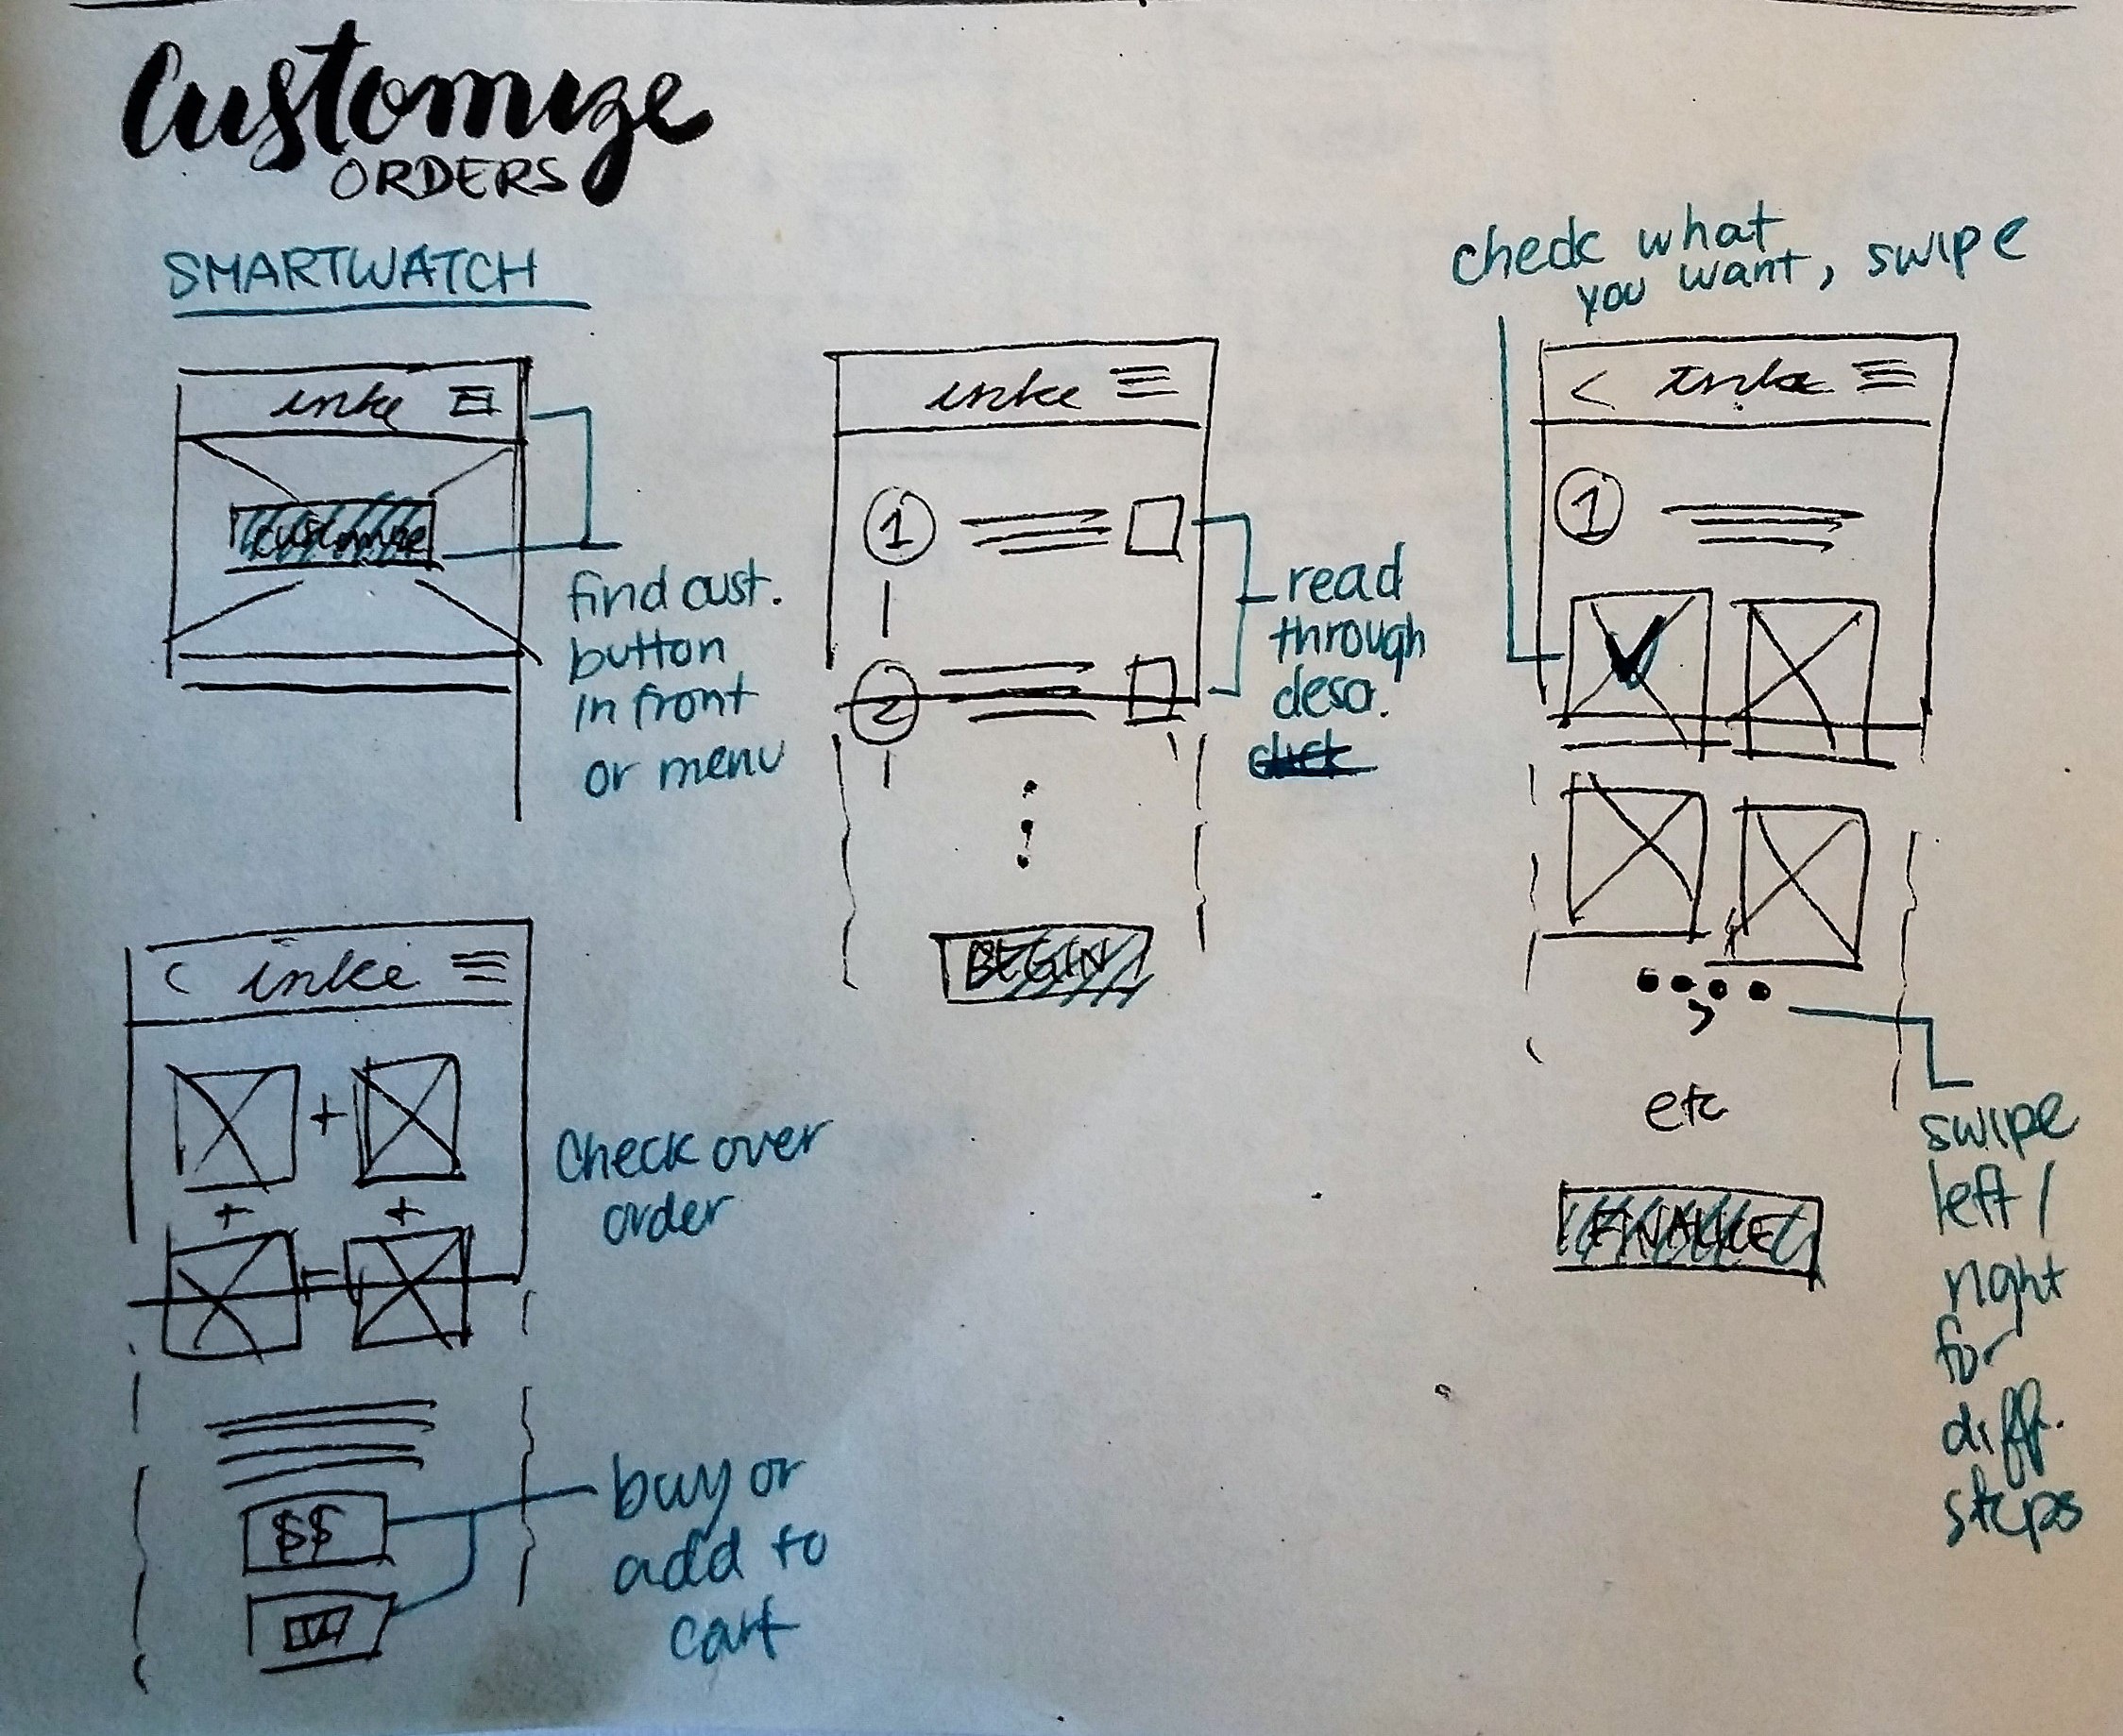 Customize
ORDERS
SMARTWATCH
inke
customize
find cust.
button
in front
or menu
inke
1
2
BEGIN
read
through
desc.
click
check what
you want, swipe
< inke
1
etc
FINALIZE
swipe
left /
right
for
diff.
steps
< inke
+
+ +
Check over
order
$$
buy or
add to
cart